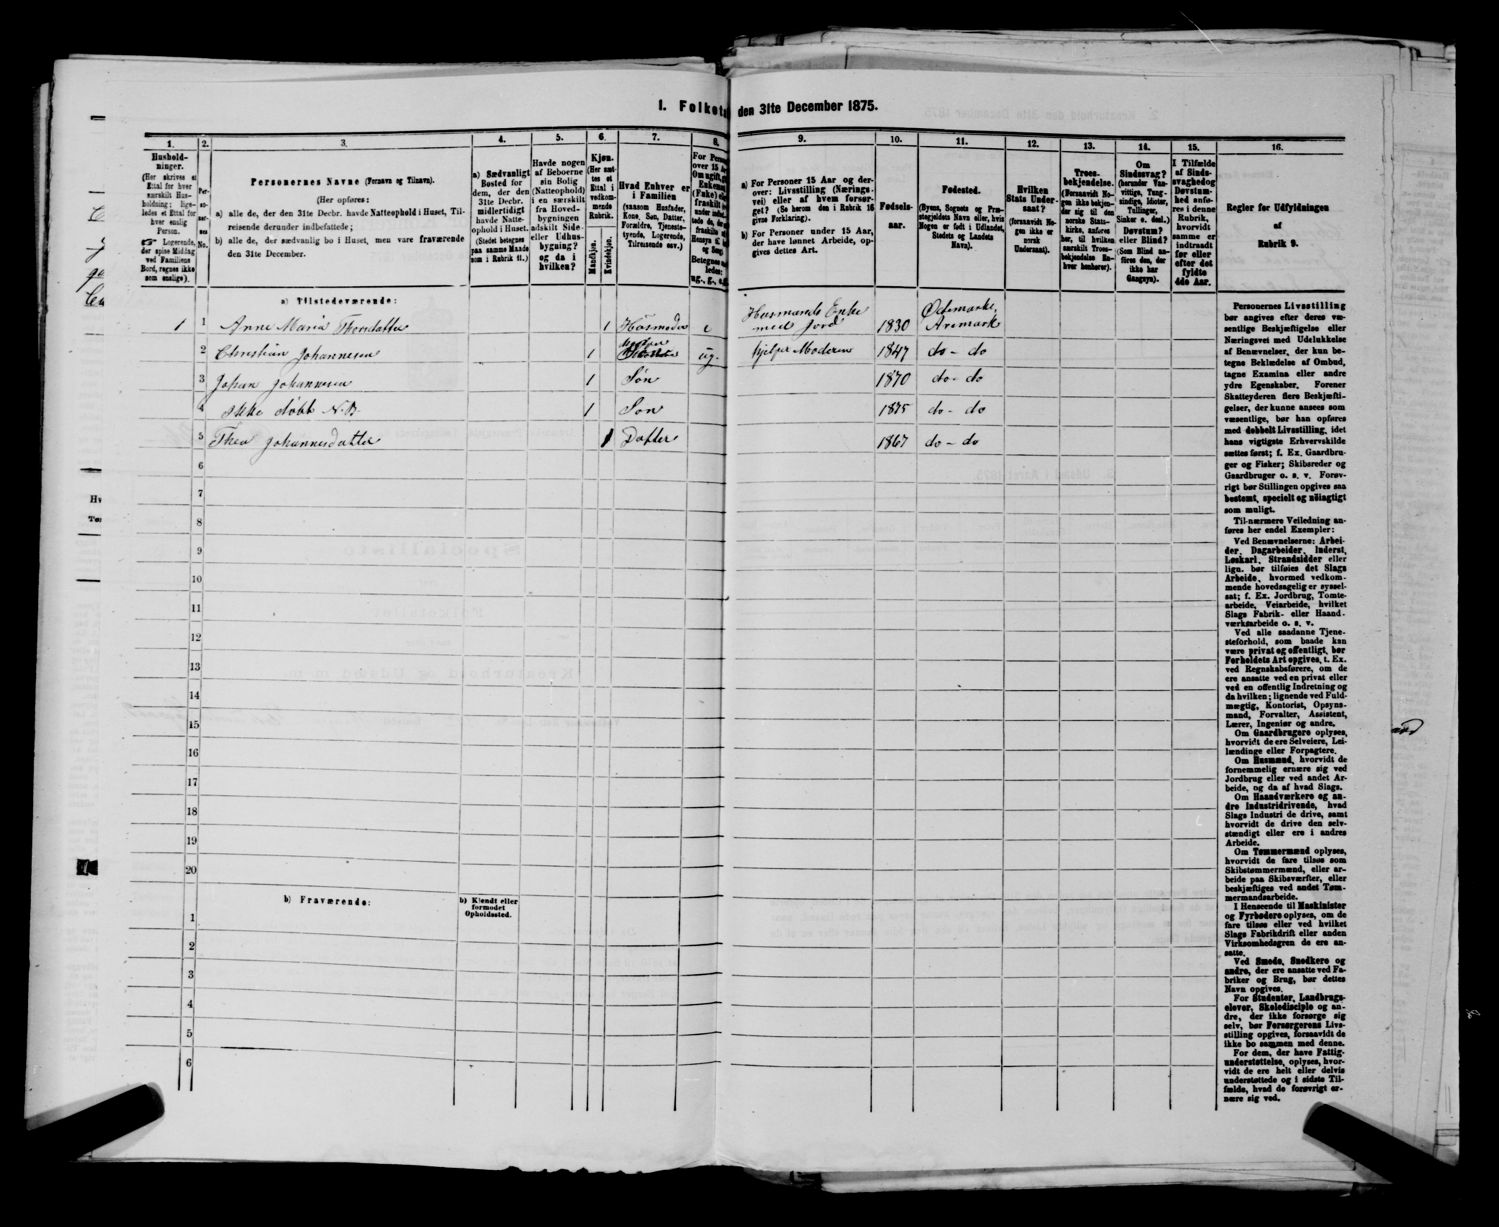 I. Folketa
den 31te December 1875.
1.
2.
3.
4.
5.
6.
7.
8.
9.
10.
11.
12.
13.
14.
15.
16.
Hushold-
ninger.
(Her skrives et
Ettal for hver
særskilt Hus-
holdning; lige-
ledes et Ettal for
hver enslig
Person.
☞ Logerende,
der spise Middag
ved Familiens
Bord, regnes ikke
som enslige).
Per-
so-
ner-
nes
No.
Personernes Navne (Fornavn og Tilnavn).
(Her opføres:
a) alle de, der den 31te Decbr. havde Natteophold i Huset, Til-
reisende derunder indbefattede;
b) alle de, der sædvanlig bo i Huset, men vare fraværende
den 31te December.
a) Sædvanligt
Bosted for
dem, der den
31te Decbr.
midlertidigt
havde Natte-
ophold i Huset.
(Stedet betegnes
paa samme Maade
som i Rubrik 11.)
Havde nogen
af Beboerne
sin Bolig
(Natteophold)
i en særskilt
fra Hoved-
bygningen
adskilt Side-
eller Udhus-
bygning?
og da i
hvilken?
Kjøn.
(Her sæt-
tes et
Ettal i
vedkom-
mende
Rubrik.
Mandkjøn.
Kvindekjøn.
Hvad Enhver er
i Familien
(saasom Husfader,
Kone, Søn, Datter,
Forældre, Tjeneste-
tyende, Logerende,
Tilreisende osv.)
For Perso
over 15 Aa
Om ugift, gi
Enkema
(Enke) ell
fraskilt
Betegnes s
ledes:
ug., g., e.
a) For Personer 15 Aar og der-
over: Livsstilling (Nærings-
vei) eller af hvem forsør-
get? (Se herom den i Rubrik 16
givne Forklaring).
b) For Personer under 15 Aar,
der have lønnet Arbeide, op-
gives dettes Art.
Fødsels-
aar.
Fødested.
(Byens, Sognets og Præ-
stegjeldets Navn eller, hvis
Nogen er født i Udlandet,
Stedets og Landets
Navn).
Hvilken
Stats Under-
saat?
(forsaavidt No-
gen ikke er
norsk
Undersaat).
Troes-
bekjendelse.
(Forsaavidt No-
gen ikke bekjen-
der sig til den
norske Stats-
kirke, anføres
her, til hvilken
særskilt Troes-
bekjendelse En-
hver henhører).
Om
Sindssvag?
(herunder Van-
vittige, Tung-
sindige, Idioter,
Tullinger,
Sinker o. desl.)
Døvstum?
eller Blind?
(Som Blind an-
føres den, der
ikke har
Gangsyn).
I Tilfælde
af Sinds-
svaghed og
Døvstum-
hed anfø-
res i denne
Rubrik,
hvorvidt
samme er
indtraadt
før eller
efter det
fyldte
4de Aar.
Regler for Udfyldningen
af
Rubrik 9.
a) Tilstedeværende:
1 1 Anne Maria Thorsdatter 1 Husmoder e Husmands Enke med Jord 1830 Ødemarke, Aremark
2 Christian Johannesen 1 ug. hjelper Moderen 1847 do - do
3 Johan Johannesen 1 Søn 1870 do - do
4 ikke døbt N.B. 1 Søn 1875 do - do
5 Thea Johannesdatter 1 Datter 1867 do - do
6
7
8
9
10
11
12
13
14
15
16
17
18
19
20
b) Fraværende:
b) Kjendt eller
formodet
Opholdssted.
1
2
3
4
5
6
Personernes Livsstilling
bør angives efter deres væ-
sentlige Beskjæftigelse eller
Næringsvei med Udelukkelse
af Benævnelser, der kun be-
tegne Beklædelse af Ombud,
tagne Examina eller andre
ydre Egenskaber. Forener
Skatteyderen flere Beskjæfti-
gelser, der kunne ansees som
væsentlige, bør han opføres
med dobbelt Livsstilling, idet
hans vigtigste Erhvervskilde
sættes først; f. Ex. Gaardbru-
ger og Fisker; Skibsreder og
Gaardbruger o. s. v. Forøv-
rigt bør Stillingen opgives saa
bestemt, specielt og nöiagtigt
som muligt.
Til nærmere Veiledning an-
føres her endel Exempler:
Ved Benævnelserne: Arbei-
der, Dagarbeider, Inderst,
Løskarl, Strandsidder eller
lign. bør tilføies det Slags
Arbeide, hvormed vedkom-
mende hovedsagelig er syssel-
sat; f. Ex. Jordbrug, Tomte-
arbeide, Veiarbeide, hvilket
Slags Fabrik- eller Haand-
værksarbeide o. s. v.
Ved alle saadanne Tjene-
steforhold, som baade kan
være privat og offentligt, bør
Forholdets Art opgives, t. Ex.
ved Regnskabsførere, om de
ere ansatte ved en privat eller
ved en offentlig Indretning og
da hvilken; lignende ved Fuld-
mægtig, Kontorist, Opsyns-
mand, Forvalter, Assistent,
Lærer, Ingeniør og andre.
Om Gaardbrugere oplyses,
hvorvidt de ere Selveiere, Lei-
lændinge eller Forpagtere.
Om Husmænd, hvorvidt de
fornemmelig ernære sig ved
Jordbrug eller ved andet Ar-
beide, og da af hvad Slags.
Om Haandværkere og an-
dre Industridrivende, hvad
Slags Industri de drive, samt
hvorvidt de drive den selv-
stændigt eller ere i andres
Arbeide.
Om Tømmermænd oplyses,
hvorvidt de fare tilsøs som
Skibstømmermænd, eller ar-
beide paa Skibsværfter, eller
beskjæftiges ved andet Tøm-
mermandsarbeide.
I Henseende til Maskinister
og Fyrbødere oplyses, om de
fare tilsøs eller ved hvilket
Slags Fabrikdrift eller anden
Virksomhedsgren de ere an-
satte.
Ved Smede, Snedkere og
andre, der ere ansatte ved Fa-
briker og Brug, bør dettes
Navn opgives.
For Studenter, Landbrugs-
elever, Skoledisciple og an-
dre, der ikke forsørge sig
selv, bør Forsørgerens Livs-
stilling opgives, forsaavidt de
ikke bo sammen med denne.
For dem, der have Fattig-
understøttelse, oplyses, hvor-
vidt de ere helt eller delvis
understøttede og i sidste Til-
fælde, hvad de forøvrigt er-
nære sig ved.